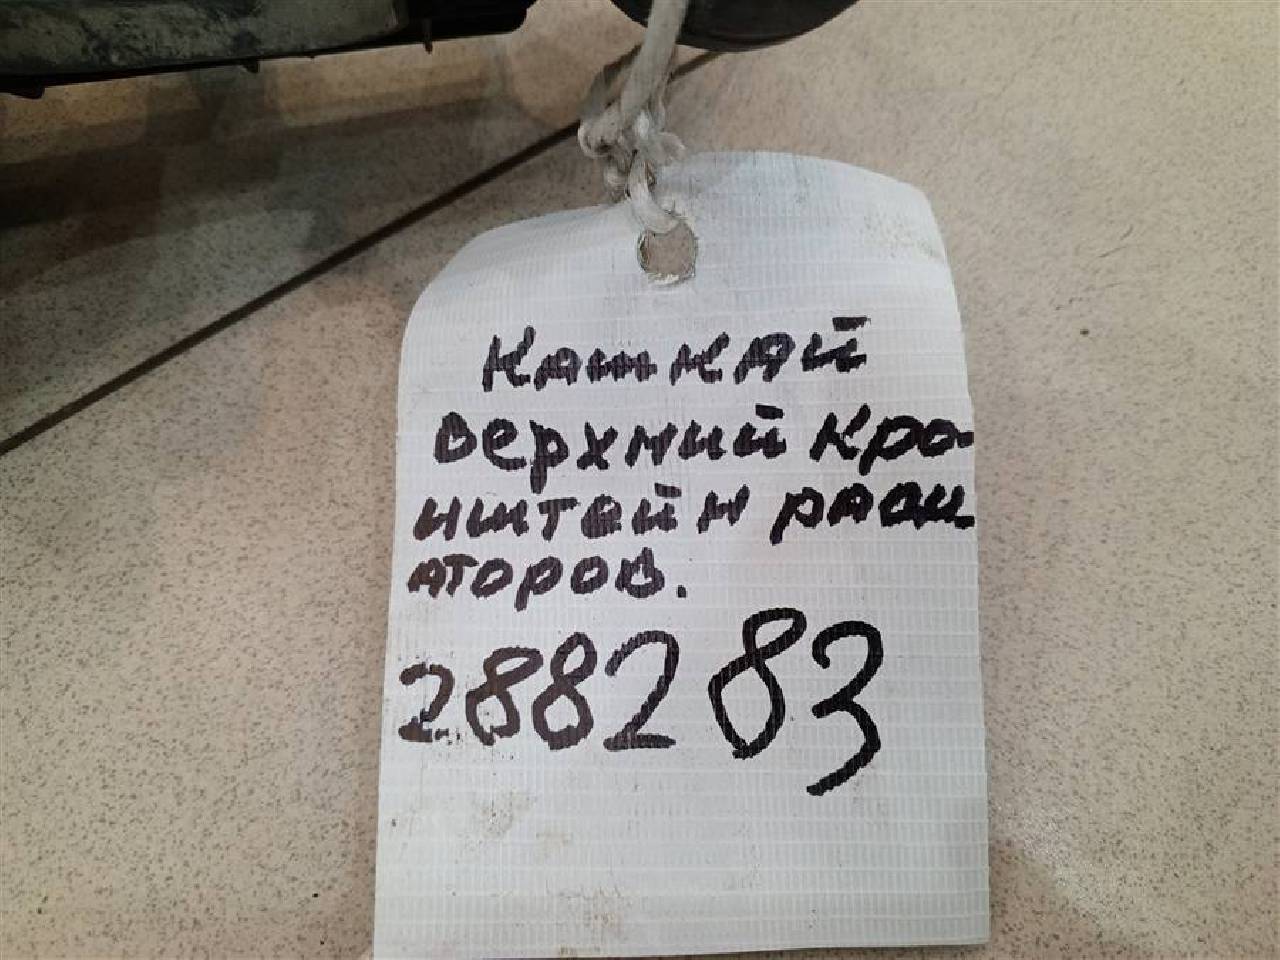 Кашкай
верхний кро-
нштейн ради
аторов.
288283